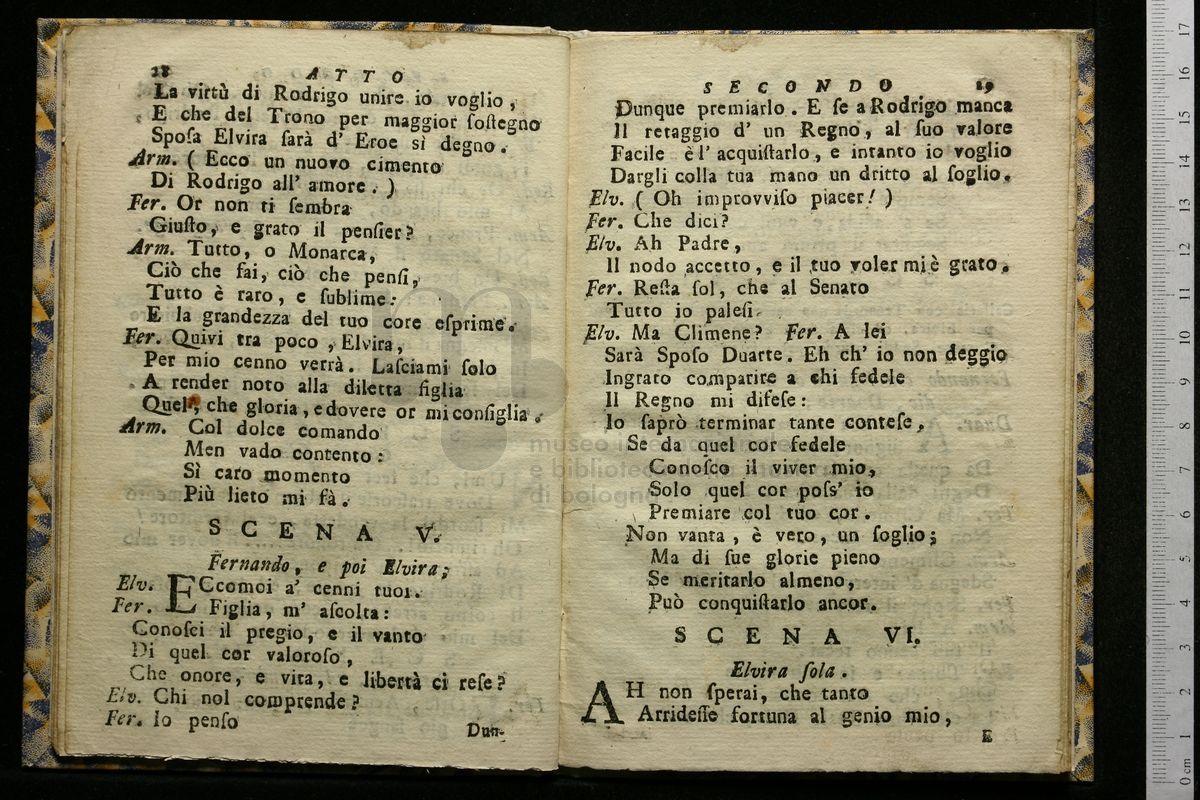 28 ATTO
La virtù di Rodrigo unire io voglio,
E che del Trono per maggior ſoſtegno
Spoſa Elvira ſarà d' Eroe sì degno.
Arm. ( Ecco un nuovo cimento
Di Rodrigo all' amore. )
Fer. Or non ti ſembra
Giuſto, e grato il penſier?
Arm. Tutto, o Monarca,
Ciò che fai, ciò che penſi,
Tutto è raro, e ſublime:
E la grandezza del tuo core eſprime.
Fer. Quivi tra poco, Elvira,
Per mio cenno verrà. Laſciami ſolo
A render noto alla diletta figlia
Quel, che gloria, e dovere or mi conſiglia.
Arm. Col dolce comando
Men vado contento:
Sì caro momento
Più lieto mi fà.
SCENA V.
Fernando, e poi Elvira;
Elv. ECcomoi a' cenni tuoi.
Fer. Figlia, m' aſcolta:
Conoſci il pregio, e il vanto
Di quel cor valoroſo,
Che onore, e vita, e libertà ci reſe?
Elv. Chi nol comprende?
Fer. Io penſo
Dun-
SECONDO 29
Dunque premiarlo. E ſe a Rodrigo manca
Il retaggio d' un Regno, al ſuo valore
Facile è l' acquiſtarlo, e intanto io voglio
Dargli colla tua mano un dritto al ſoglio.
Elv. ( Oh improvviſo piacer! )
Fer. Che dici?
Elv. Ah Padre,
Il nodo accetto, e il tuo voler mi è grato.
Fer. Reſta ſol, che al Senato
Tutto io paleſi.
Elv. Ma Climene? Fer. A lei
Sarà Spoſo Duarte. Eh ch' io non deggio
Ingrato comparire a chi fedele
Il Regno mi difeſe:
Io ſaprò terminar tante conteſe,
Se da quel cor fedele
Conoſco il viver mio,
Solo quel cor poſs' io
Premiare col tuo cor.
Non vanta, è vero, un ſoglio;
Ma di ſue glorie pieno
Se meritarlo almeno,
Può conquiſtarlo ancor.
SCENA VI.
Elvira ſola.
AH non ſperai, che tanto
Arrideſſe fortuna al genio mio,
E
museo
e biblioteca
di bologna
0 cm 1 2 3 4 5 6 7 8 9 10 11 12 13 14 15 16 17